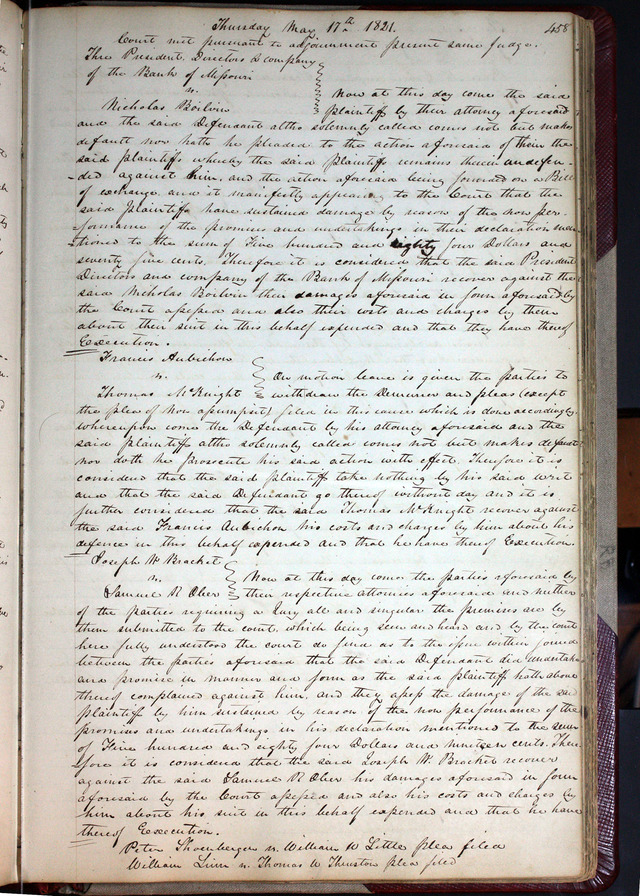 Thursday May 17th 1821.
458
Court met pursuant to adjournment present same judge.
The President, Directors & company
of the Bank of Missouri
vs.
Now at this day come the said
Nicholas Boilvin
plaintiff by their attorney aforesaid
and the said Defendant altho solemnly called comes not but makes
default nor hath he pleaded to the action aforesaid of them the
said plaintiffs whereby the said plaintiffs remains therein undefen-
-ded against him, and the action aforesaid being founded on a Bill
of exchange and it manifestly appearing to the Court that the
said plaintiffs have sustained damage by reason of the non per-
formance of the promises and undertakings in their declaration men-
tioned to the sum of Five hundred and eighty four Dollars and
seventy five cents. Therefore it is considered that the said President
Directors and company of the Bank of Missouri recover against the
said Nicholas Boilvin their damages aforesaid in form aforesaid by
the Court assessed and also their costs and charges by them
about their suit in this behalf expended and that they have thereof
Execution.
Francis Aubichon
vs.
On motion leave is given the parties to
Thomas McKnight
withdraw the Demurrer and pleas (except
the plea of Non assumpsit) filed in this cause which is done accordingly
whereupon comes the Defendant by his attorney aforesaid and the
said plaintiff altho solemnly called comes not but makes default
nor doth he prosecute his said action with effect. Therefore it is
considered that the said plaintiff take nothing by his said writ
and that the said Defendant go thereof without day and it is
further considered that the said Thomas McKnight recover against
the said Francis Aubichon his costs and charges by him about his
defence in this behalf expended and that he have thereof Execution.
Joseph W Bracket
vs.
Now at this day comes the parties aforesaid by
Samuel R Ober
their respective attornies aforesaid and neither
of the parties requiring a Jury all and singular the premises are by
them submitted to the court which being seen and heard and by the court
here fully understood the court do find as to the issue within joined
between the parties aforesaid that the said Defendant did undertake
and promise in manner and form as the said plaintiff hath above
thereof complained against him, and they assess the damage of the said
plaintiff by him sustained by reason of the non performance of the
promises and undertakings in his declaration mentioned to the sum
of Five hundred and eighty four Dollars and nineteen cents. There
fore it is considered that the said Joseph W. Bracket recover
against the said Samuel R Ober his damages aforesaid in form
aforesaid by the Court assessed and also his costs and charges by
him about his suit in this behalf expended and that he have
thereof Execution.
Peter Shoenberger vs. William W Little plea filed
William Linn vs. Thomas W Thruston plea filed